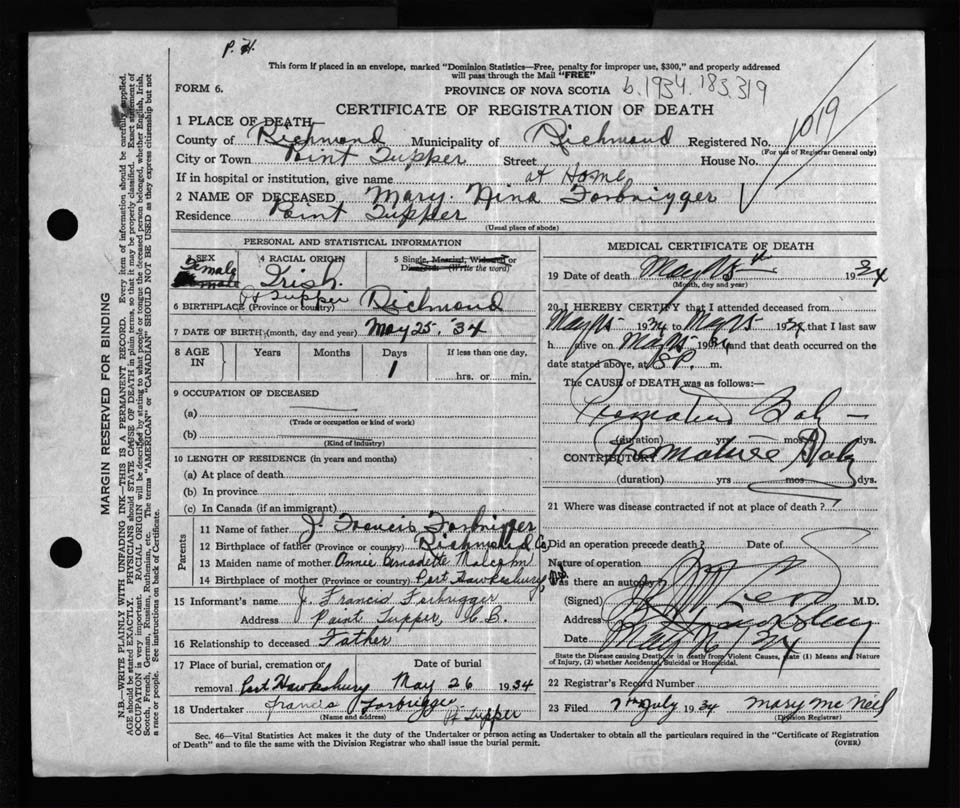 P. H.
This form if placed in an envelope, marked "Dominion Statistics—Free, penalty for improper use, $300," and properly addressed
will pass through the Mail "FREE"
FORM 6.
PROVINCE OF NOVA SCOTIA
b.1934.183.319
CERTIFICATE OF REGISTRATION OF DEATH
1019
1 PLACE OF DEATH
County of Richmond Municipality of Richmond Registered No.
(For use of Registrar General only)
City or Town Point Tupper Street House No.
If in hospital or institution, give name at Home
2 NAME OF DECEASED Mary Nina Forbrigger
Residence Point Tupper
(Usual place of abode)
PERSONAL AND STATISTICAL INFORMATION
SEX Female
4 RACIAL ORIGIN Irish
5 Single, Married, Widowed or
Divorced: (Write the word)
6 BIRTHPLACE (Province or country) Pt Tupper Richmond
7 DATE OF BIRTH (month, day and year) May 25. '34
8 AGE IN Years Months Days If less than one day,
1 hrs. or min.
9 OCCUPATION OF DECEASED
(a)
(Trade or occupation or kind of work)
(b)
(Kind of industry)
10 LENGTH OF RESIDENCE (in years and months)
(a) At place of death
(b) In province
(c) In Canada (if an immigrant)
Parents
11 Name of father J. Francis Forbrigger
12 Birthplace of father (Province or country) Richmond Co
13 Maiden name of mother Annie Bernadette Malcolm
14 Birthplace of mother (Province or country) Port Hawkesbury
15 Informant's name J. Francis Forbrigger
Address Point Tupper, C.B.
16 Relationship to deceased Father
17 Place of burial, cremation or Date of burial
removal Port Hawkesbury May 26 1934
18 Undertaker Francis Forbrigger Pt Tupper
(Name and address)
MEDICAL CERTIFICATE OF DEATH
19 Date of death May 1934
(Month, day and year)
20 I HEREBY CERTIFY that I attended deceased from
May 1934 to May 1934 that I last saw
h alive on May 1934 and that death occurred on
date stated above, at 8 P. m.
The CAUSE of DEATH was as follows:—
Premature Baby —
(duration) yrs mos dys.
CONTRIBUTORY Premature Baby
(duration) yrs mos dys.
21 Where was disease contracted if not at place of death ?
Did an operation precede death ? Date of
Nature of operation
Was there an autopsy ?
(Signed) M.D.
Address
Date May 34
State the Disease causing Death, or in death from Violent Causes, state (1) Means and Nature
of Injury, (2) whether Accidental, Suicidal or Homicidal.
22 Registrar's Record Number
23 Filed 7th July 1934 Mary Mc Neil
(Division Registrar)
Sec. 46—Vital Statistics Act makes it the duty of the Undertaker or person acting as Undertaker to obtain all the particulars required in the "Certificate of Registration
of Death" and to file the same with the Division Registrar who shall issue the burial permit.
(OVER)
MARGIN RESERVED FOR BINDING
N.B.—WRITE PLAINLY WITH UNFADING INK—THIS IS A PERMANENT RECORD. Every item of information should be carefully supplied.
AGE should be stated EXACTLY. PHYSICIANS should STATE CAUSE OF DEATH in plain terms, so that it may be properly classified. Exact statement of
OCCUPATION is very important. RACIAL ORIGIN will be described by stating to what people or tongue the deceased person belonged, whether English, Irish,
Scotch, French, German, Russian, Ruthenian, etc. The terms "AMERICAN" or "CANADIAN" SHOULD NOT BE USED as they express citizenship but not
a race or people. See instructions on back of Certificate.